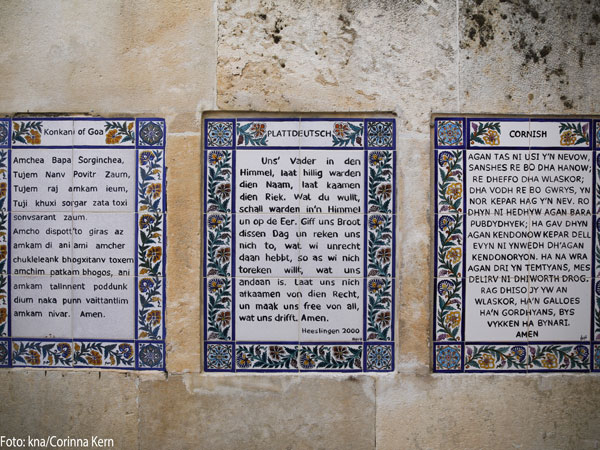 Konkani of Goa
Amchea Bapa Sorginchea,
Tujem Nanv Povitr Zaum,
Tujem raj amkam ieum,
Tuji khuxi sorgar zata toxi
sonvsarant zaum.
Amcho dispott'to giras az
amkam di ani ami amcher
chukleleank bhogxitanv toxem
amchim patkam bhogos, ani
amkam tallnnent poddunk
dium naka punn vaittantlim
amkam nivar. Amen.
PLATTDEUTSCH
Uns' Vader in den
Himmel, laat hillig warden
dien Naam, laat kaamen
dien Riek. Wat du wullt,
schall warden in'n Himmel
un op de Eer. Giff uns Broot
dissen Dag un reken uns
nich to, wat wi unrecht
daan hebbt, so as wi nich
toreken willt, wat uns
andaan is. Laat uns nich
afkaamen von dien Recht,
un maak uns free von all,
wat uns drifft. Amen.
Heeslingen 2000
CORNISH
AGAN TAS NI USI Y'N NEVOW,
SANSHES RE BO DHA HANOW;
RE DHEFFO DHA WLASKOR;
DHA VODH RE BO GWRYS, YN
NOR KEPAR HAG Y'N NEV. RO
DHYN NI HEDHYW AGAN BARA
PUBDYDHYEK; HA GAV DHYN
AGAN KENDONOW KEPAR DELL
EVYN NI YNWEDH DH'AGAN
KENDONORYON. HA NA WRA
AGAN DRI YN TEMTYANS, MES
DELIRV NI DHIWORTH DROG.
RAG DHISO JY YW AN
WLASKOR, HA'N GALLOES
HA'N GORDHYANS, BYS
VYKKEN HA BYNARI.
AMEN
Foto: kna/Corinna Kern